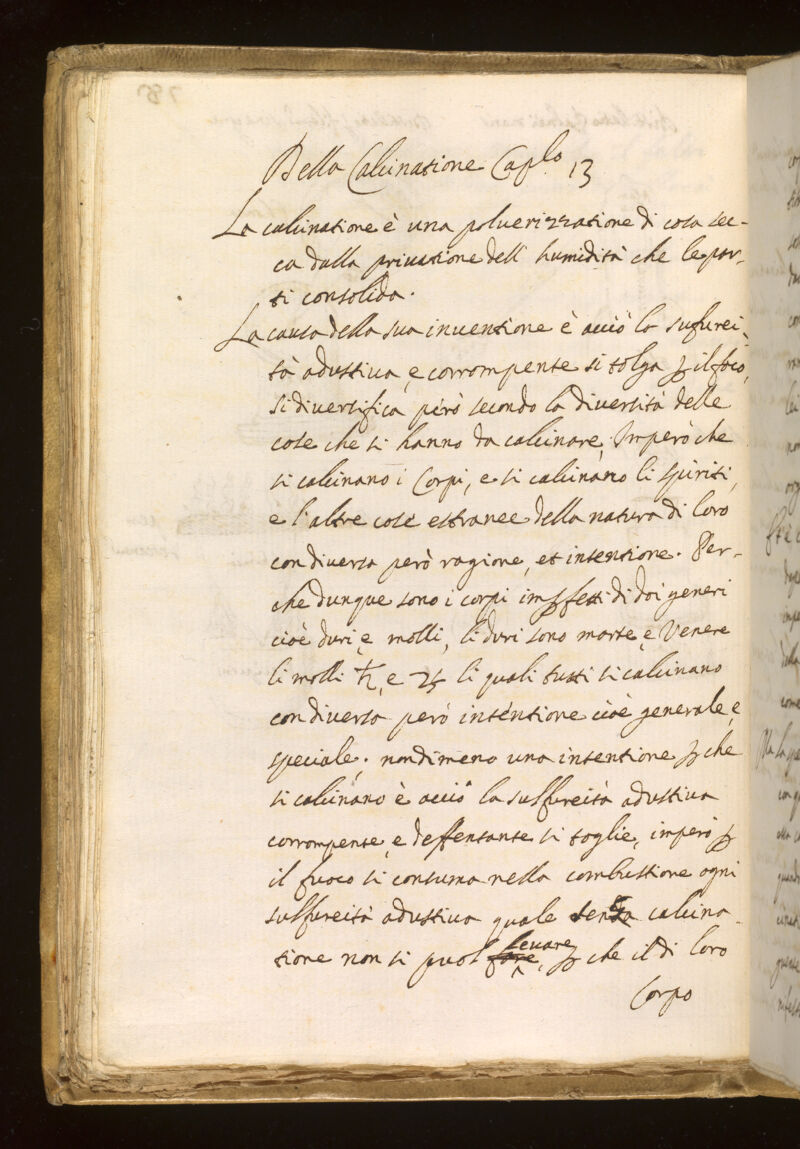 Della Calcinatione Cap.lo 13
La calcinatione è una poluerizzatione di cosa sec-
ca dalla priuatione dell' humidità che le par-
ti consolida.
La causa della sua inuentione è acciò la sufurei-
tà adustiua, e corrompente si tolga ꝑ il foco,
si diuersifica però secondo la diuersità delle
cose che si hanno da calcinare, Imperò che
si calcinano i Corpi, e si calcinano li spiriti,
e l'altre cose estranee della natura di loro
con diuersa però ragione, et intentione. Per-
che dunque sono i corpi imꝑfetti di doi generi
cioè duri, e molli, li duri sono marte, e Venere
li molli ♄, e ♃ li quali tutti si calcinano
con diuersa però intentione cioè generale, e
speciale. nondimeno una intentione ꝑ che
si calcinano è acciò la sulfureità adustiua
corrompente, e deffentante si toglie, imperò ꝑ
il fuoco si consuma nella combustione ogni
sulfureità adustiua quale senza calcina-
tione non si puol leuare, ꝑ che il di loro
Corpo